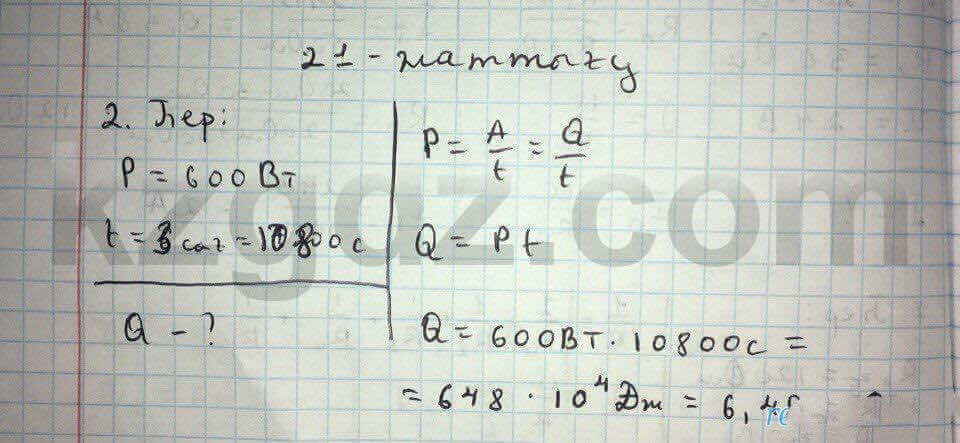 21 - жаттығу
2. Бер:
P = 600 Вт
t = 3 сағ = 10800 с
Q - ?
P = A/t = Q/t
Q = P t
Q = 600 Вт · 10800 с =
= 648 · 10⁴ Дж = 6,4
kzgdz.com